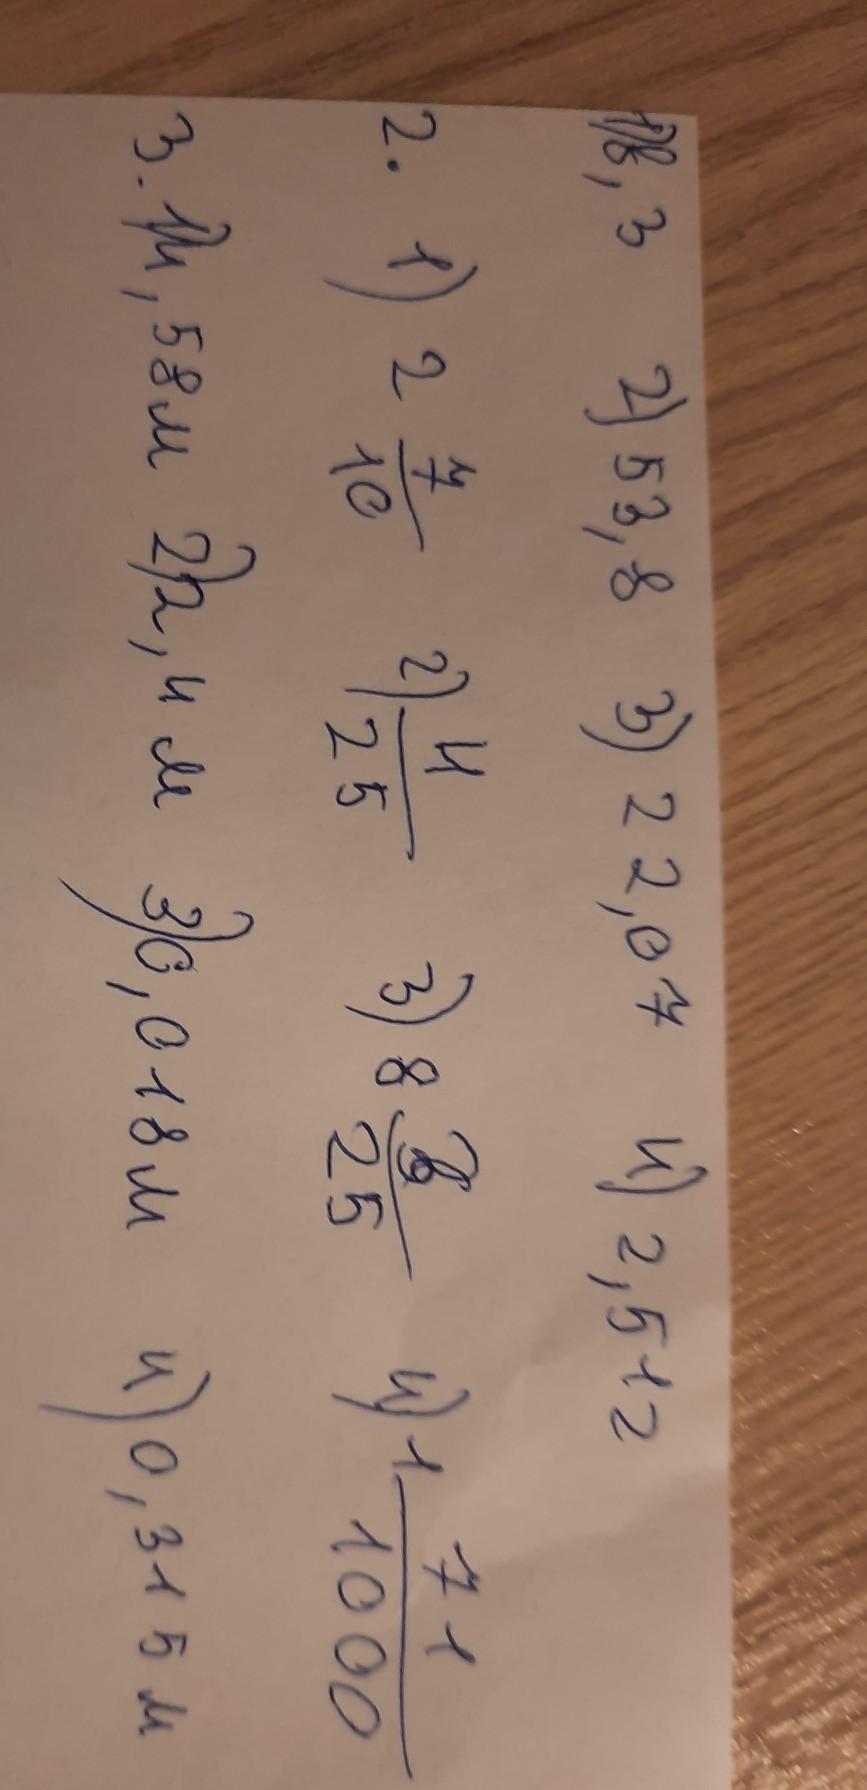 1) 8,3 2) 53,8 3) 22,07 4) 2,512
2. 1) 2 7/10 2) 4/25 3) 8 /25 4) 1 71/1000
3. 1) 4,58 м 2) 2,4 м 3) 0,018 м 4) 0,315 м